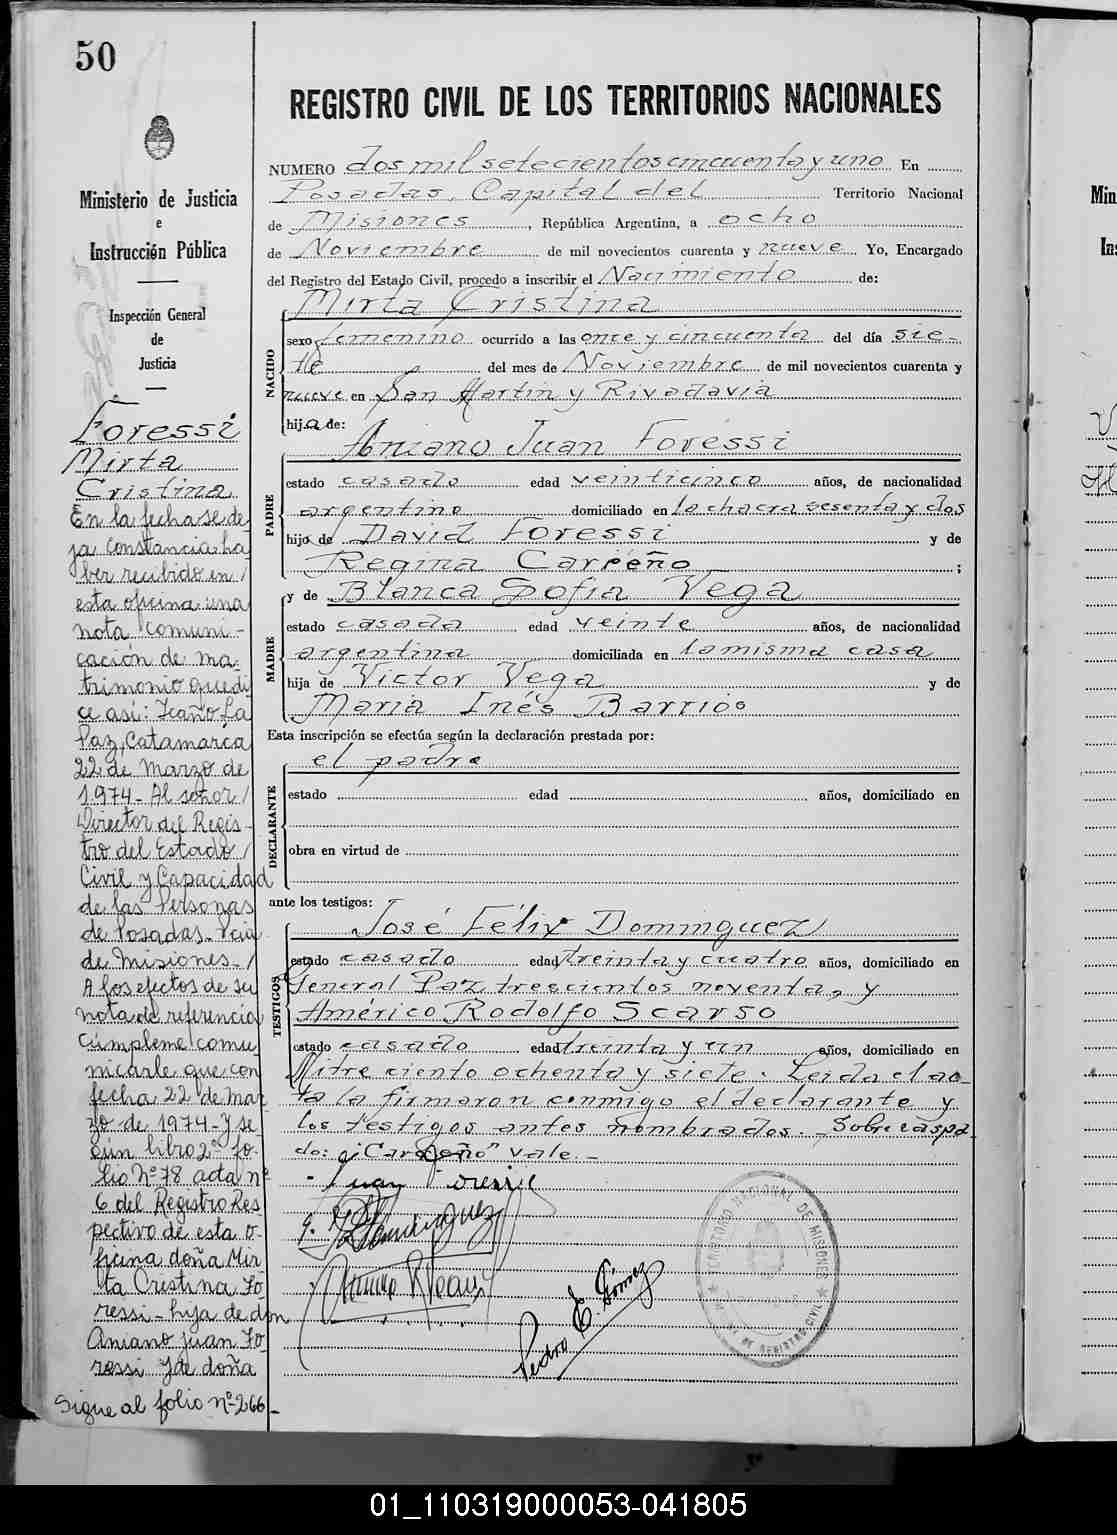 50
Ministerio de Justicia
e
Instrucción Pública
Inspección General
de
Justicia
Foressi
Mirta
Cristina
En la fecha se de
ja constancia ha
ber recibido en
esta oficina una
nota comuni-
cación de ma
trimonio que di
ce así: Icaño La
Paz, Catamarca
22 de Marzo de
1974- Al señor
Director del Regis-
tro del Estado
Civil y Capacidad
de las Personas
de Posadas- Pcia
de Misiones.-
A los efectos de su
nota de referencia
cúmpleme comu
nicarle que con
fecha 22 de Mar
zo de 1974- Y se
gún libro 2º fo-
lio Nº 78 acta nº
6 del Registro Res
pectivo de esta o-
ficina doña Mir
ta Cristina Fo
ressi- hija de don
Aniano Juan Fo
ressi y de doña
Sigue al folio nº 266-
REGISTRO CIVIL DE LOS TERRITORIOS NACIONALES
NUMERO dos mil setecientos cincuenta y uno En
Posadas, Capital del Territorio Nacional
de Misiones, República Argentina, a ocho
de Noviembre de mil novecientos cuarenta y nueve Yo, Encargado
del Registro del Estado Civil, procedo a inscribir el Nacimiento de:
NACIDO
Mirta Cristina
sexo femenino ocurrido a las once y cincuenta del día sie-
te del mes de Noviembre de mil novecientos cuarenta y
nueve en San Martin y Rivadavia
hija de:
PADRE
Aniano Juan Foressi
estado casado edad veinticinco años, de nacionalidad
argentino domiciliado en la chacra sesenta y dos
hijo de David Foressi y de
Regina Carreño ;
MADRE
y de Blanca Sofia Vega
estado casada edad veinte años, de nacionalidad
argentina domiciliada en la misma casa
hija de Victor Vega y de
Maria Inés Barrios
Esta inscripción se efectúa según la declaración prestada por:
DECLARANTE
el padre
estado edad años, domiciliado en
obra en virtud de
ante los testigos:
TESTIGOS
José Félix Dominguez
estado casado edad treinta y cuatro años, domiciliado en
General Paz trescientos noventa, y
Américo Rodolfo Scarso
estado casado edad treinta y un años, domiciliado en
Mitre ciento ochenta y siete. Leida el ac-
ta la firmaron conmigo el declarante y
los testigos antes nombrados.- Sobre raspa
do: "Carreño" vale.-
Juan Foressi
Pedro E. Gómez
TERRITORIO NACIONAL DE MISIONES
REGISTRO CIVIL
01_110319000053-041805